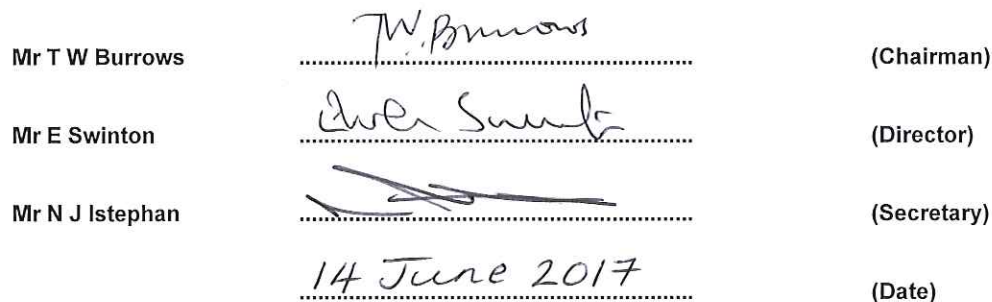 Mr T W Burrows T.W. Burrows (Chairman)
Mr E Swinton Swinton (Director)
Mr N J Istephan (Secretary)
14 June 2017 (Date)